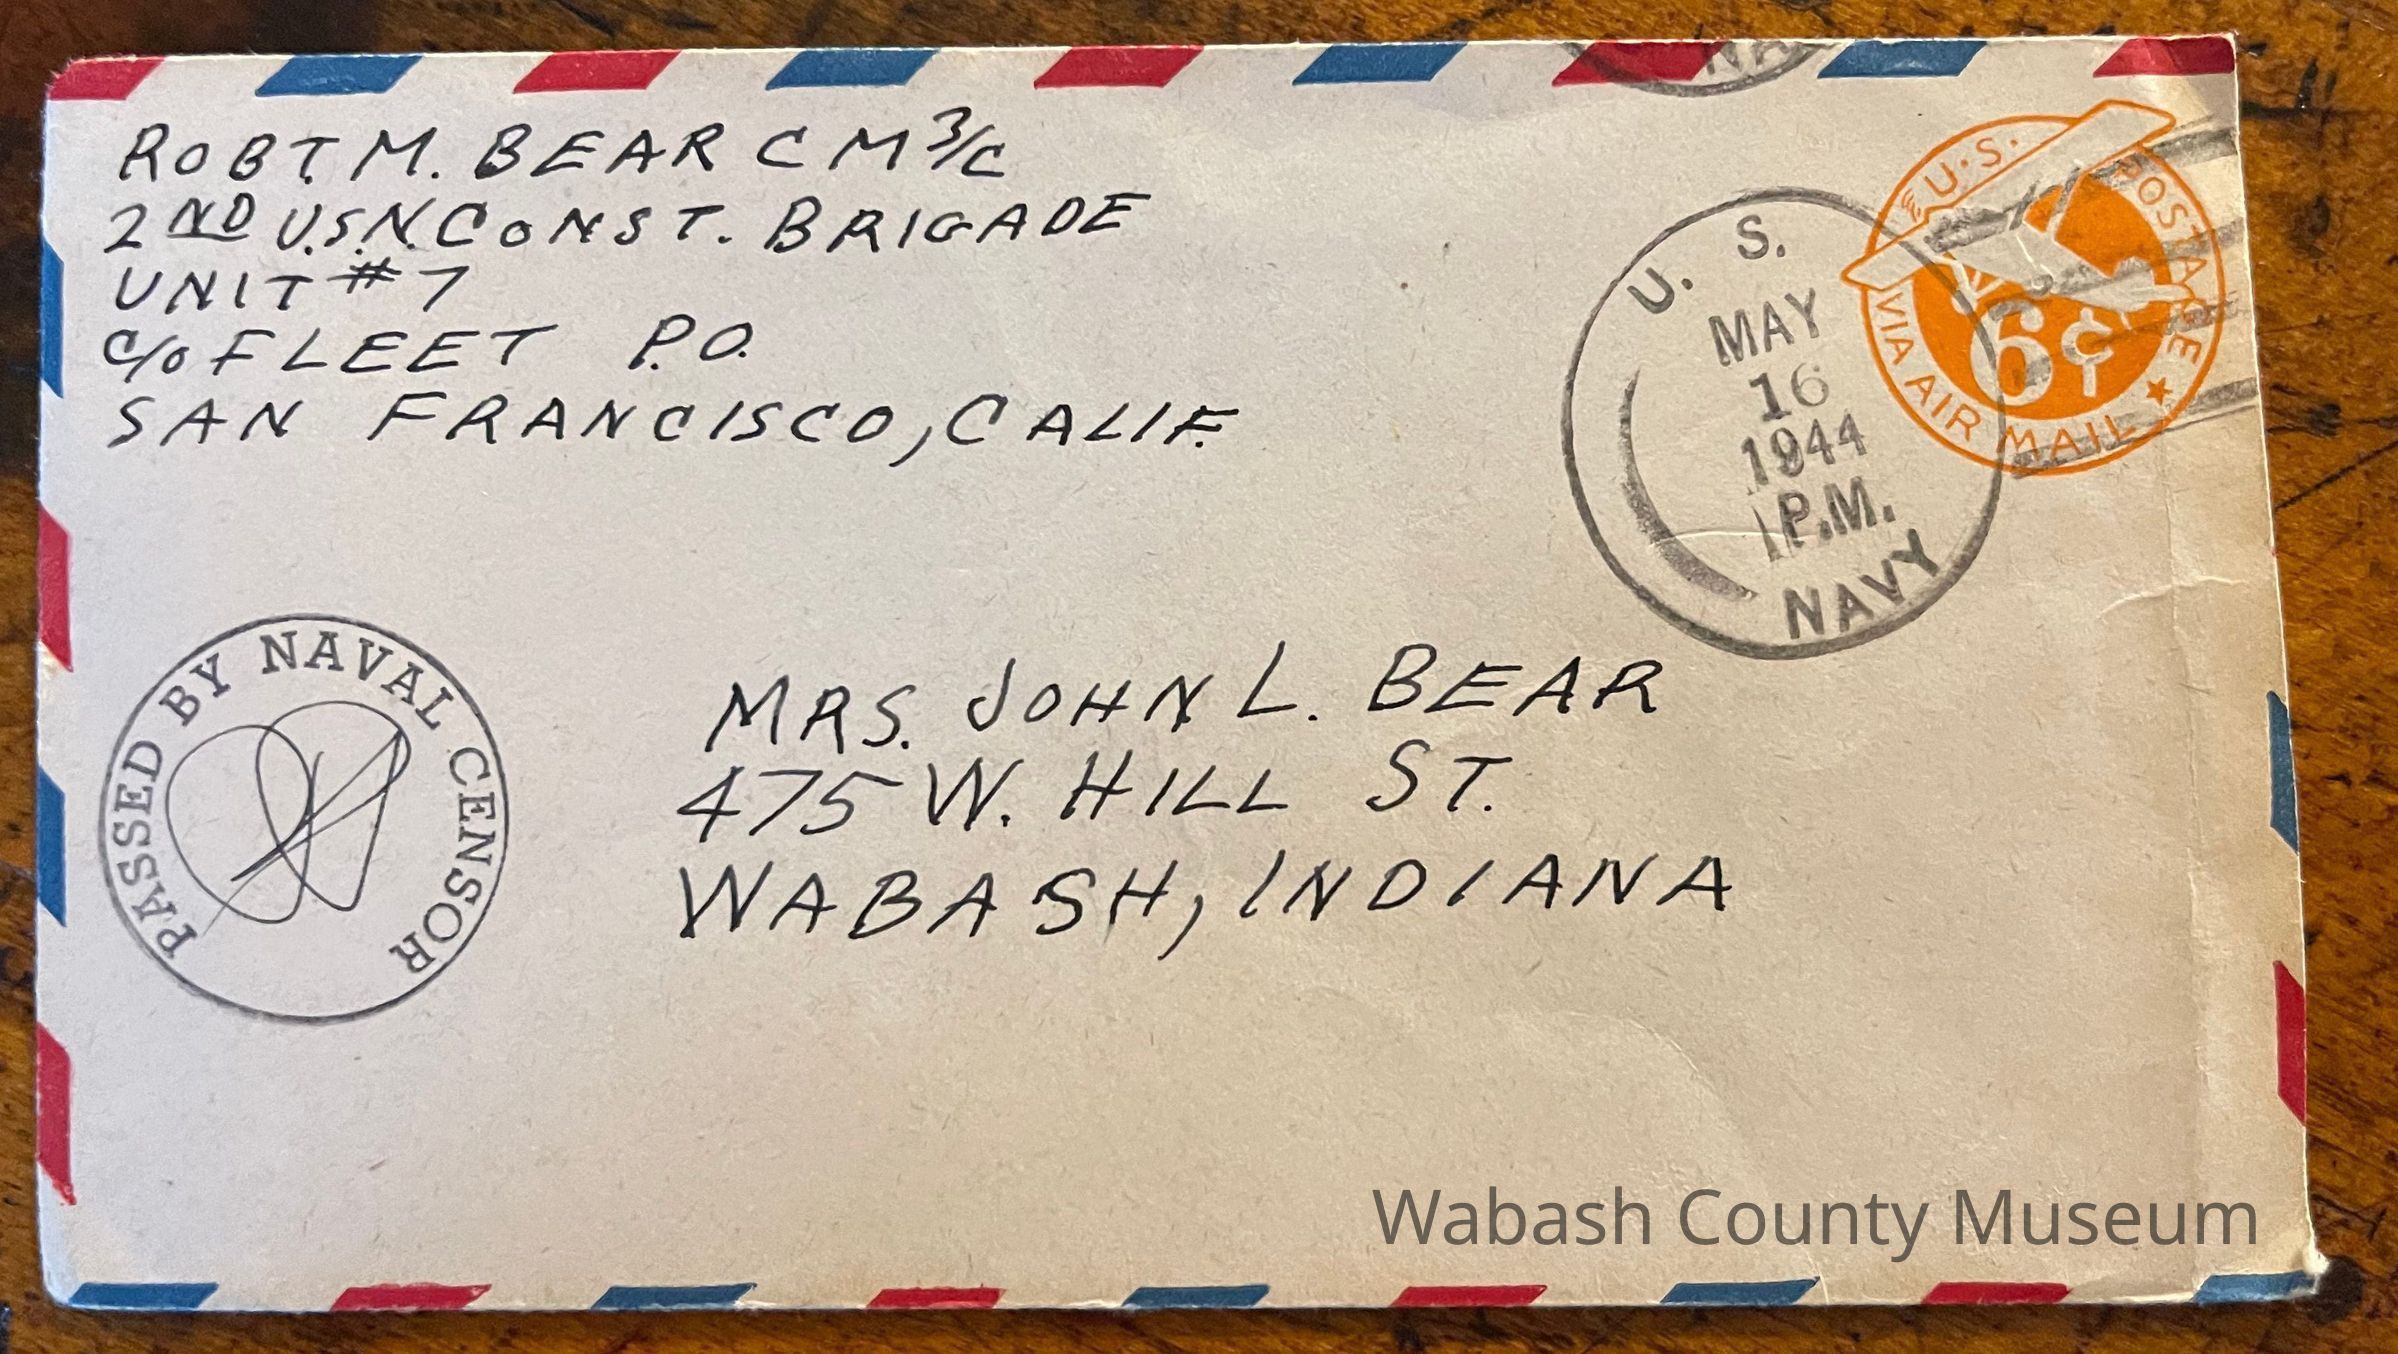 ROBT. M. BEAR CM 3/C
2ND U.S.N. CONST. BRIGADE
UNIT #7
C/O FLEET P.O.
SAN FRANCISCO, CALIF.
NA
U. S.
MAY
16
1944
1 P.M.
NAVY
U.S. POSTAGE
6¢
VIA AIR MAIL
PASSED BY NAVAL CENSOR
MRS. JOHN L. BEAR
475 W. HILL ST.
WABASH, INDIANA
Wabash County Museum